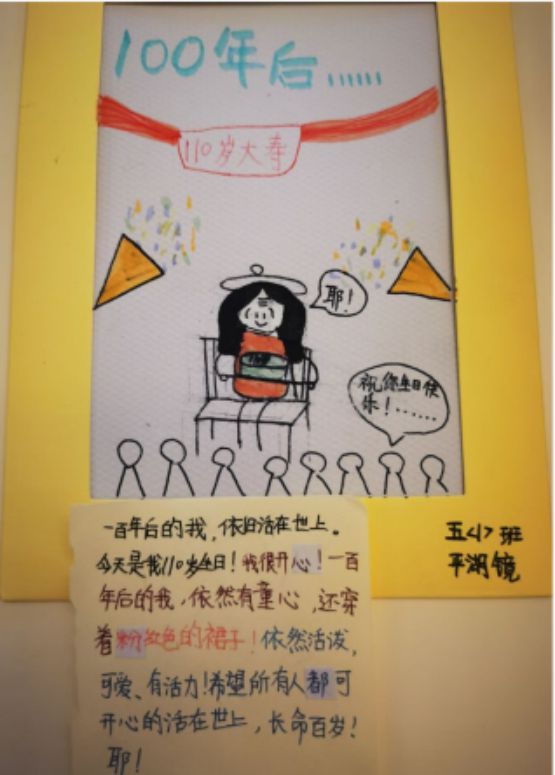 100年后......
110岁大寿
耶！
祝您生日快
乐！......
一百年后的我，依旧活在世上。
今天是我110岁生日！我很开心！一百
年后的我，依然有童心，还穿
着粉红色的裙子！依然活泼，
可爱、有活力！希望所有人都可
开心的活在世上，长命百岁！
耶！
五<1>班
平湖镜